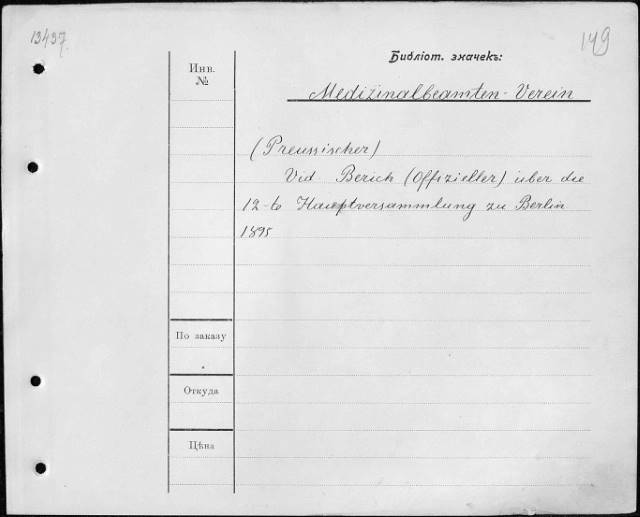 13437.
149
Библіот. значекъ:
Инв.
№
Medizinalbeamten-Verein
(Preussischer)
Vid Berich (Offizieller) über die
12-te Hauptversammlung zu Berlin
1895
По заказу
Откуда
Цѣна